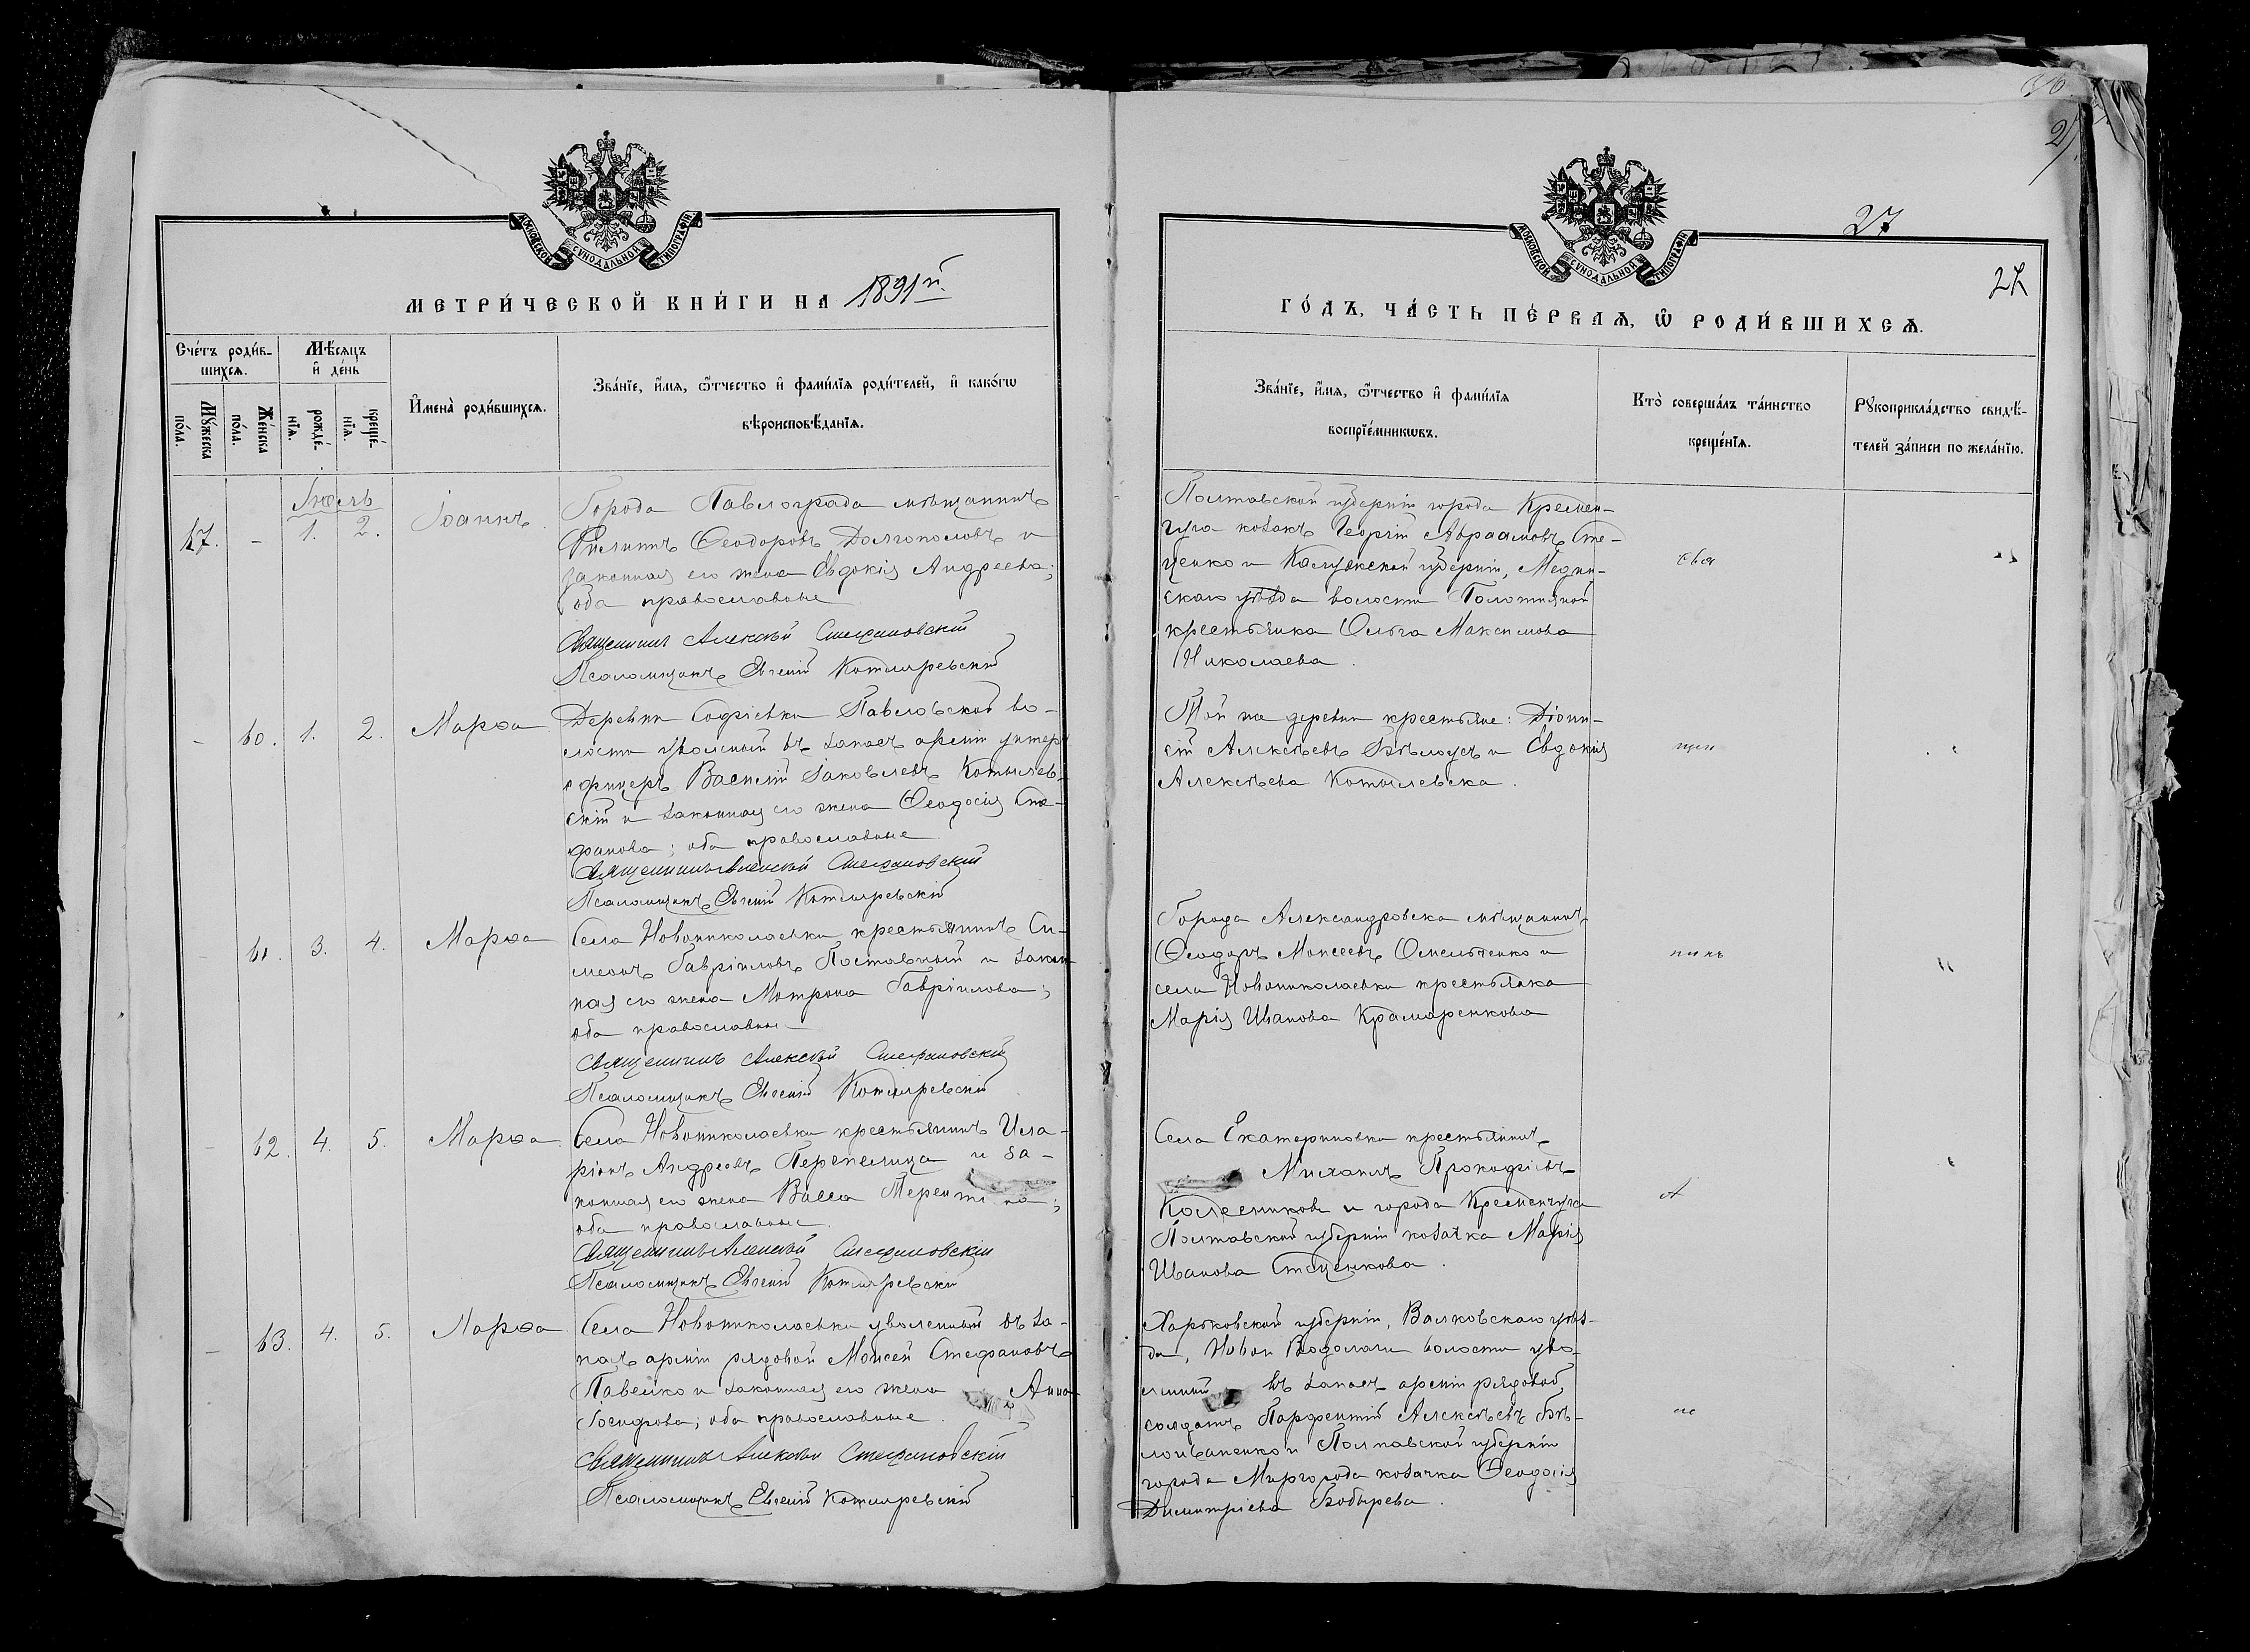 36.
27.
27
27
МОСКОВСКОЙ СѴНОДАЛЬНОЙ ТИПОГРАФІИ
МЕТРИ́ЧЕСКОЙ КНИ́ГИ НА 1891й.
Сче́тъ роди́в-
шихсѧ.
Мѣ́сѧцъ
и҆ де́нь
Мꙋ́жеска
по́ла.
Же́нска
по́ла.
рожде́-
нїѧ.
креще́-
нїѧ.
И҆мена̀ роди́вшихсѧ.
Зва́нїе, и҆́мѧ, ѻ҆́тчество и҆ фами́лїѧ роди́телей, и҆ како́гѡ
вѣроисповѣ́данїѧ.
Іюль
47. - 1. 2. Іоаннъ
Города Павлограда мѣщанинъ
Филиппъ Ѳеодоровъ Долгополовъ и
законная его жена Евдокія Андреева;
оба православные
Священникъ Алексѣй Стефановскій
Псаломщикъ Евгеній Котляревскій
- 60. 1. 2. Марѳа
Деревни Софіевки Павловской во-
лости уволенный въ запасъ арміи унтеръ
офицеръ Василій Іаковлевъ Котылев-
скій и законная его жена Ѳеодосія Сте-
фанова; оба православные
Священникъ Алексѣй Стефановскій
Псаломщикъ Евгеній Котляревскій
- 61. 3. 4. Марѳа
Села Новониколаевки крестьянинъ Си-
меонъ Гавріиловъ Поставный и закон-
ная его жена Матрона Гавріилова;
оба православные
Священникъ Алексѣй Стефановскій
Псаломщикъ Евгеній Котляревскій
- 62. 4. 5. Марѳа
Села Новониколаевки крестьянинъ Ила-
ріонъ Андреевъ Перепелица и за-
конная его жена Васса
оба православные
Священникъ Алексѣй Стефановскій
Псаломщикъ Евгеній Котляревскій
- 63. 4. 5. Марѳа
Села Новониколаевки уволенный въ за-
пасъ арміи рядовой Моисей Стефановъ
Павелко и законная его жена Анна
Іосифова; оба православные
Священникъ Алексѣй Стефановскій
Псаломщикъ Евгеній Котляревскій
МОСКОВСКОЙ СѴНОДАЛЬНОЙ ТИПОГРАФІИ
ГО́ДЪ, ЧА́СТЬ ПЕ́РВАѦ, Ѡ҆ РОДИ́ВШИХСѦ.
Зва́нїе, и҆́мѧ, ѻ҆́тчество и҆ фами́лїѧ
воспрїе́мникѡвъ.
Кто̀ соверша́лъ та́инство
креще́нїѧ.
Рꙋкоприкла́дство свидѣ́-
телей за́писи по жела́нїю.
Полтавской губерніи города Кремен-
чуга козакъ Георгій Авраамовъ Сте-
ценко и Калужской губерніи, Медын-
скаго уѣзда волости Полотняной
крестьянка Ольга Максимова
Николаева.
Той же деревни крестьяне: Діони-
сій Алексѣевъ Бѣлоусъ и Евдокія
Алексѣева Котылевска.
Города Александровска мѣщанинъ
Ѳеодоръ Моисеевъ Омельченко и
села Новониколаевки крестьянка
Марія Иванова Крамаренкова
Села Екатериновки крестьянинъ
Михаилъ Прокофіевъ
Колесниковъ и города Кременчуга
Полтавской губерніи козачка Марія
Иванова Стеценкова.
Харьковской губерніи, Валковскаго уѣз-
да, Новой Водолаги волости уво-
ленный въ запасъ арміи рядовой
солдатъ Парфентій Алексѣевъ Бѣ-
лоиваненко и Полтавской губерніи
города Миргорода козачка Ѳеодосія
Димитріева Бобырева.
свя
щен
никъ
А
ле